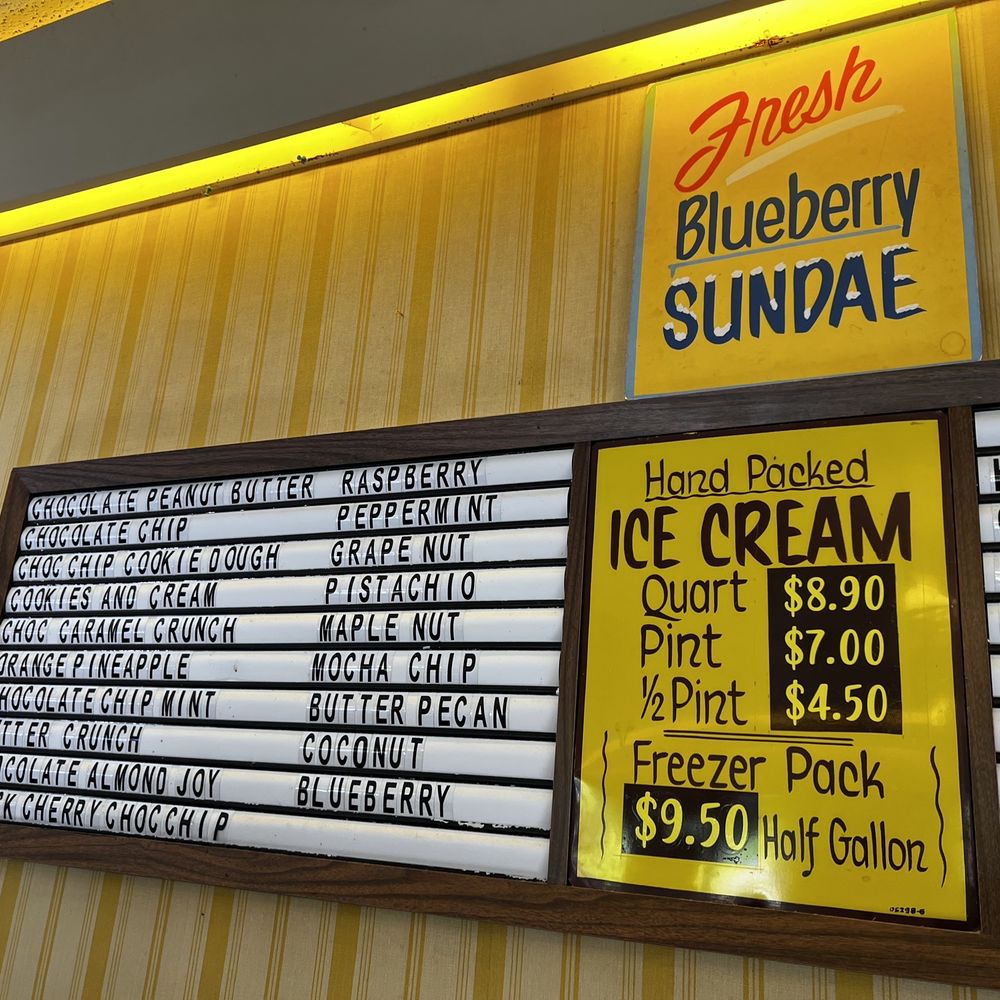 Fresh
Blueberry
SUNDAE
CHOCOLATE PEANUT BUTTER RASPBERRY
CHOCOLATE CHIP PEPPERMINT
CHOC CHIP COOKIE DOUGH GRAPE NUT
COOKIES AND CREAM PISTACHIO
CHOC CARAMEL CRUNCH MAPLE NUT
ORANGE PINEAPPLE MOCHA CHIP
HOCOLATE CHIP MINT BUTTER PECAN
TTER CRUNCH COCONUT
OCOLATE ALMOND JOY BLUEBERRY
CK CHERRY CHOC CHIP
Hand Packed
ICE CREAM
Quart $8.90
Pint $7.00
½ Pint $4.50
Freezer Pack
$9.50 Half Gallon